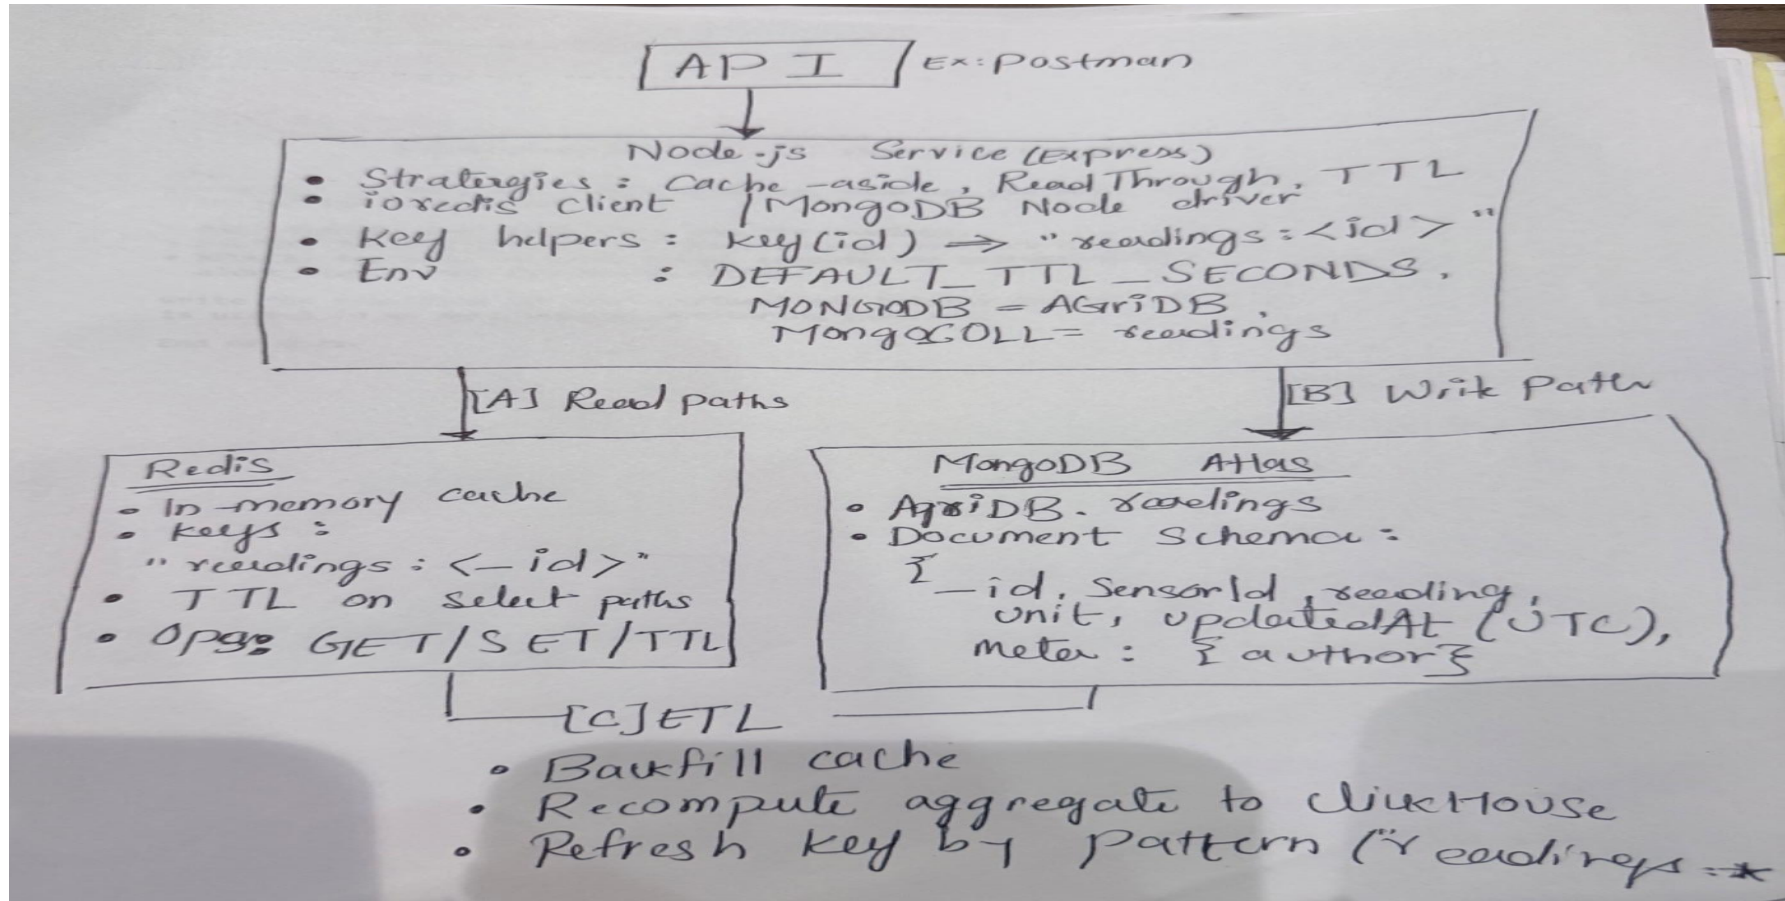 API Ex: Postman
Node.js Service (Express)
• Stratergies : Cache-aside, Read Through, TTL
• ioredis client / MongoDB Node driver
• Key helpers : key(id) ⇒ "readings:<id>"
• Env : DEFAULT_TTL_SECONDS,
MONGODB = AGriDB,
MongoCOLL = readings
[A] Read paths
[B] Write Path
Redis
• In-memory cache
• Keys :
"readings:<_id>"
• TTL on select paths
• Ops: GET/SET/TTL
MongoDB Atlas
• AgriDB.readings
• Document Schema :
{ _id, SensorId, reading,
unit, updatedAt (UTC),
meta : { author}
[C] ETL
• Backfill cache
• Recompute aggregate to ClickHouse
• Refresh key by pattern ("readings:*